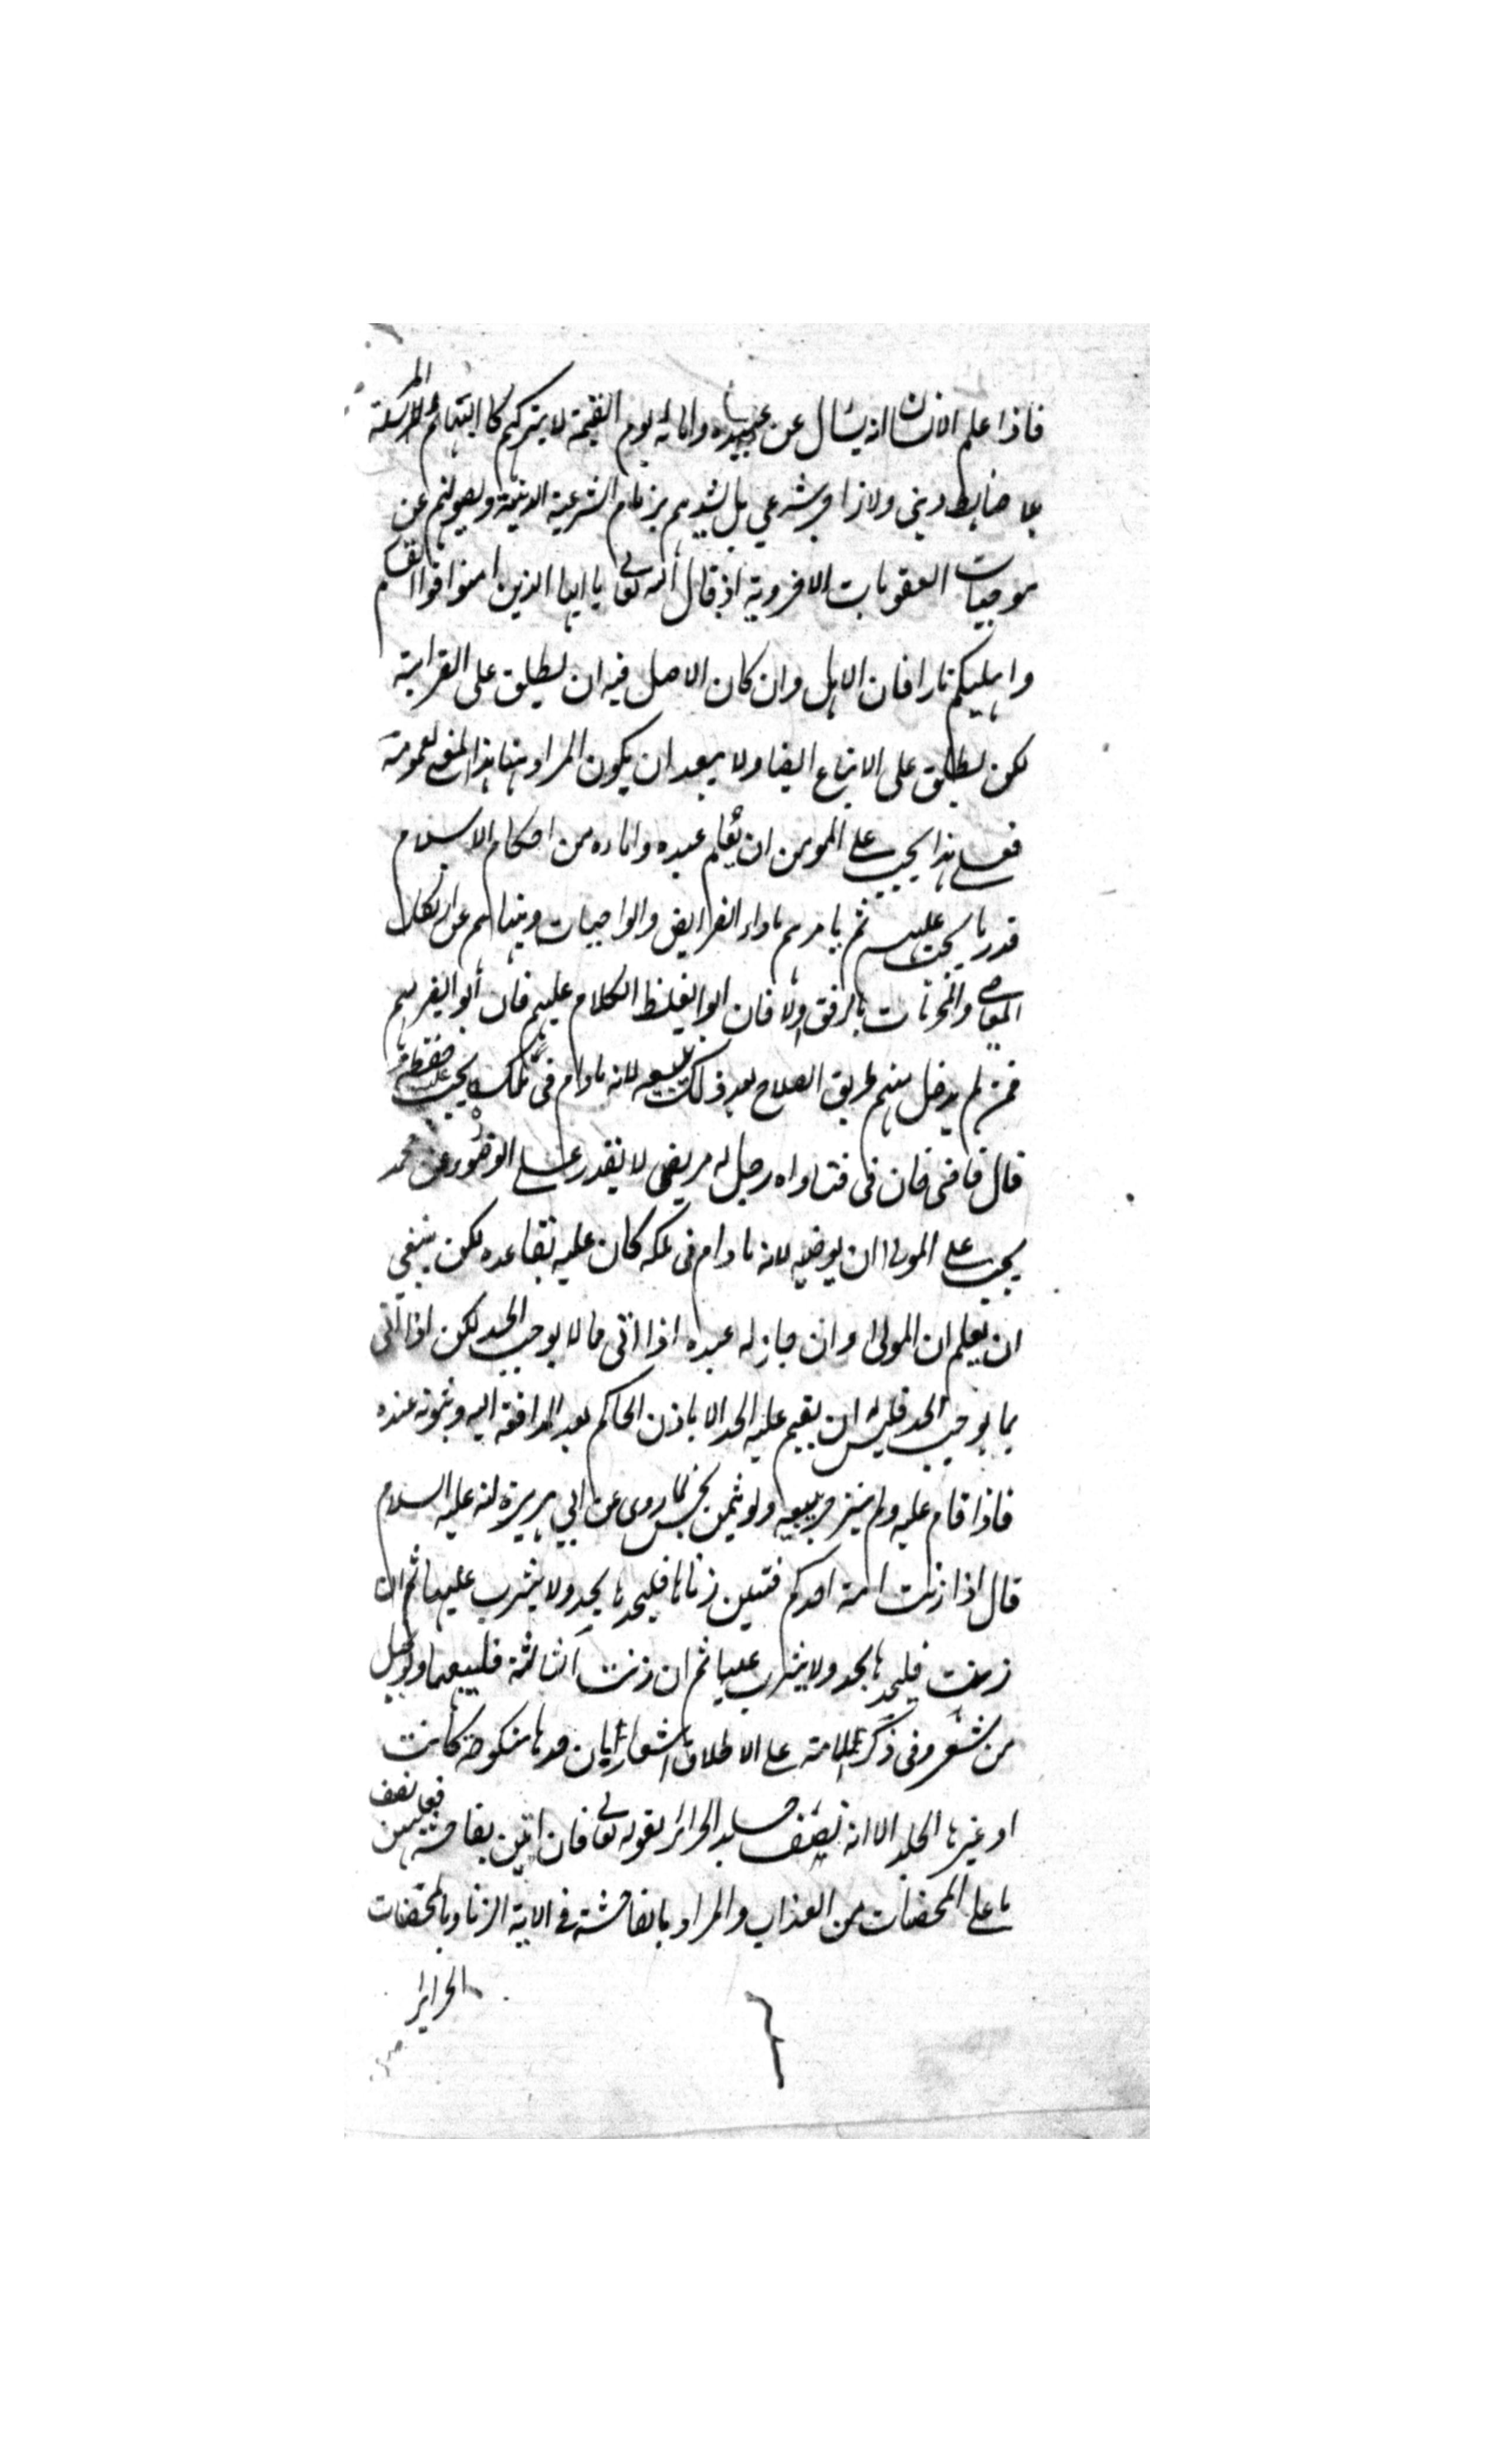 فاذا علم الانسان انه يسأل عن عبيده وامائه يوم القيمة لا يتركهم كالبهائم المرسلة
بلا ضابط ديني ولا زاجر شرعي بل يشدهم بزمام الشرعية الدينية ويصونهم عن
موجبات العقوبات الاخروية اذ قال الله تعالى يا ايها الذين امنوا قوا انفسكم
واهليكم نارا فان الاهل وان كان الاصل فيه ان يطلق على القرابة
لكن يطلق على الاتباع ايضا ولا يبعد ان يكون المراد هنا هذا المعنى لعمومه
فعلى هذا يجب على المومن ان يعلم عبيده واماءه من احكام الاسلام
قدر ما يجب عليهم ثم يامرهم باداء الفرايض والواجبات وينهاهم عن ارتكاب
المعاصي والمحرمات بالرفق اولا فان ابوا يغلظ الكلام عليهم فان أبوا يضربهم
فمن لم يدخل منهم طريق الصلاح بعد ذلك يبيعه لانه مادام في ملكه يجب عليه حفظه
قال قاضي خان في فتاواه رجل له مريض لا يقدر على الوضوء عن محمد
يجب على المولى ان يوضيه لانه مادام في ملكه كان عليه تعاهده لكن ينبغي
ان يعلم ان المولى وان جاز له عبده اذا اتى ما لا يوجب الحد لكن اذا اتى
بما يوجب الحد فليس له ان يقيم عليه الحد الا باذن الحاكم بعد المرافعة اليه وثبوته عنده
فاذا قام عليه ولم ينزجر يبيعه ولو بثمن بخس لما روي عن ابي هريرة انه عليه السلام
قال اذا زنت امة احدكم فتبين زناها فليجلدها الحد ولا يثرب عليها ثم ان
زنت فليجلدها الحد ولا يثرب عليها ثم ان زنت الثالثة فليبعها ولو بحبل
من شعر وفي ذكر الامة على الاطلاق اشعار بان حدها منكوحة كانت
او غيرها الجلد الا انه نصف جلد الحرائر لقوله تعالى فان اتين بفاحشة فعليهن نصف
ما على المحصنات من العذاب والمراد بالفاحشة في الاية الزنا وبالمحصنات
الحراير